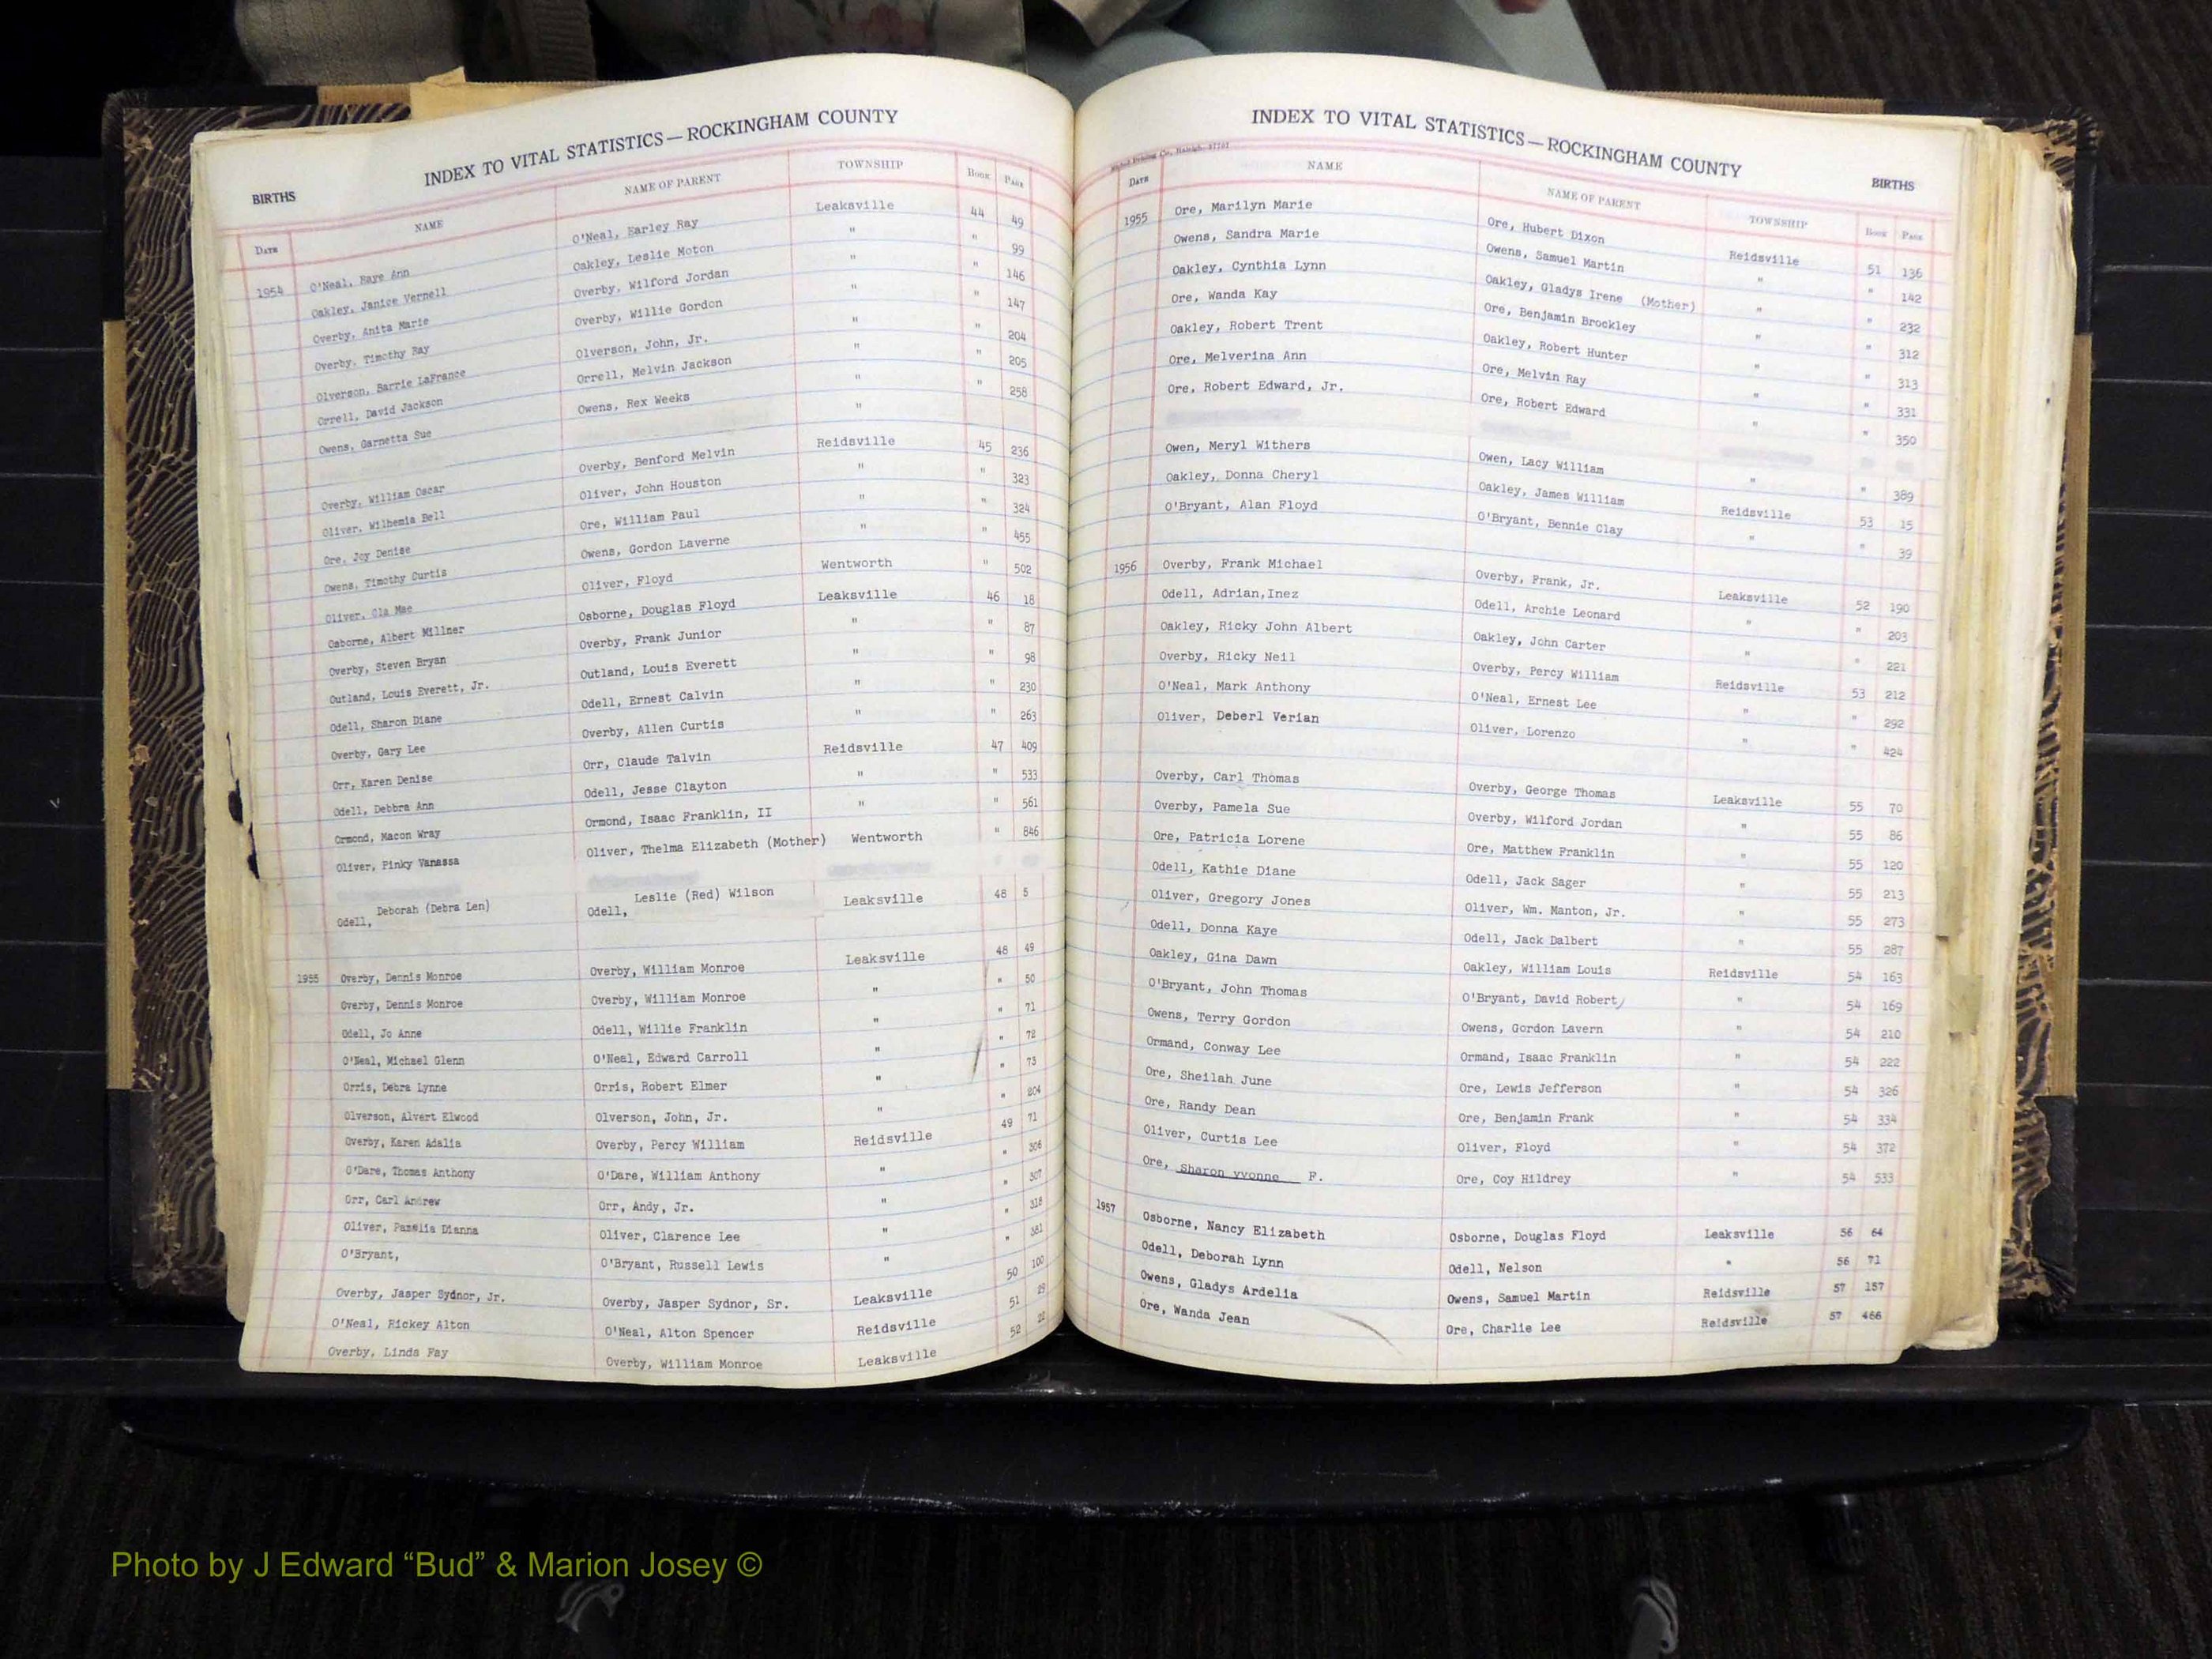 INDEX TO VITAL STATISTICS — ROCKINGHAM COUNTY
BIRTHS
DATE NAME NAME OF PARENT TOWNSHIP BOOK PAGE
1954 O'Neal, Raye Ann O'Neal, Earley Ray Leaksville 44 49
Oakley, Janice Vernell Oakley, Leslie Moton " " 99
Overby, Anita Marie Overby, Wilford Jordan " " 146
Overby, Timothy Ray Overby, Willie Gordon " " 147
Olverson, Barrie LaFrance Olverson, John, Jr. " " 204
Orrell, David Jackson Orrell, Melvin Jackson " " 205
Owens, Garnetta Sue Owens, Rex Weeks " " 258
Overby, William Oscar Overby, Benford Melvin Reidsville 45 236
Oliver, Wilhemia Bell Oliver, John Houston " " 323
Ore, Joy Denise Ore, William Paul " " 324
Owens, Timothy Curtis Owens, Gordon Laverne " " 455
Oliver, Ola Mae Oliver, Floyd Wentworth " 502
Osborne, Albert Millner Osborne, Douglas Floyd Leaksville 46 18
Overby, Steven Bryan Overby, Frank Junior " " 87
Outland, Louis Everett, Jr. Outland, Louis Everett " " 98
Odell, Sharon Diane Odell, Ernest Calvin " " 230
Overby, Gary Lee Overby, Allen Curtis " " 263
Orr, Karen Denise Orr, Claude Talvin Reidsville 47 409
Odell, Debbra Ann Odell, Jesse Clayton " " 533
Ormond, Macon Wray Ormond, Isaac Franklin, II " " 561
Oliver, Pinky Vanassa Oliver, Thelma Elizabeth (Mother) Wentworth " 846
Odell, Deborah (Debra Len) Odell, Leslie (Red) Wilson Leaksville 48 5
1955 Overby, Dennis Monroe Overby, William Monroe Leaksville 48 49
Overby, Dennis Monroe Overby, William Monroe " " 50
Odell, Jo Anne Odell, Willie Franklin " " 71
O'Neal, Michael Glenn O'Neal, Edward Carroll " " 72
Orris, Debra Lynne Orris, Robert Elmer " " 73
Olverson, Alvert Elwood Olverson, John, Jr. " " 204
Overby, Karen Adalia Overby, Percy William Reidsville 49 71
O'Dare, Thomas Anthony O'Dare, William Anthony " " 306
Orr, Carl Andrew Orr, Andy, Jr. " " 307
Oliver, Pamelia Dianna Oliver, Clarence Lee " " 318
O'Bryant, O'Bryant, Russell Lewis " " 381
Overby, Jasper Sydnor, Jr. Overby, Jasper Sydnor, Sr. Leaksville 50 100
O'Neal, Rickey Alton O'Neal, Alton Spencer Reidsville 51 29
Overby, Linda Fay Overby, William Monroe Leaksville 52 22
INDEX TO VITAL STATISTICS — ROCKINGHAM COUNTY
BIRTHS
DATE NAME NAME OF PARENT TOWNSHIP BOOK PAGE
1955 Ore, Marilyn Marie Ore, Hubert Dixon Reidsville 51 136
Owens, Sandra Marie Owens, Samuel Martin " " 142
Oakley, Cynthia Lynn Oakley, Gladys Irene (Mother) " " 232
Ore, Wanda Kay Ore, Benjamin Brockley " " 312
Oakley, Robert Trent Oakley, Robert Hunter " " 313
Ore, Melverina Ann Ore, Melvin Ray " " 331
Ore, Robert Edward, Jr. Ore, Robert Edward " " 350
Owen, Meryl Withers Owen, Lacy William " " 389
Oakley, Donna Cheryl Oakley, James William Reidsville 53 15
O'Bryant, Alan Floyd O'Bryant, Bennie Clay " " 39
1956 Overby, Frank Michael Overby, Frank, Jr. Leaksville 52 190
Odell, Adrian,Inez Odell, Archie Leonard " " 203
Oakley, Ricky John Albert Oakley, John Carter " " 221
Overby, Ricky Neil Overby, Percy William Reidsville 53 212
O'Neal, Mark Anthony O'Neal, Ernest Lee " " 292
Oliver, Deberl Verian Oliver, Lorenzo " " 424
Overby, Carl Thomas Overby, George Thomas Leaksville 55 70
Overby, Pamela Sue Overby, Wilford Jordan " 55 86
Ore, Patricia Lorene Ore, Matthew Franklin " 55 120
Odell, Kathie Diane Odell, Jack Sager " 55 213
Oliver, Gregory Jones Oliver, Wm. Manton, Jr. " 55 273
Odell, Donna Kaye Odell, Jack Dalbert " 55 287
Oakley, Gina Dawn Oakley, William Louis Reidsville 54 163
O'Bryant, John Thomas O'Bryant, David Robert " 54 169
Owens, Terry Gordon Owens, Gordon Lavern " 54 210
Ormand, Conway Lee Ormand, Isaac Franklin " 54 222
Ore, Sheilah June Ore, Lewis Jefferson " 54 326
Ore, Randy Dean Ore, Benjamin Frank " 54 334
Oliver, Curtis Lee Oliver, Floyd " 54 372
Ore, Sharon yvonne F. Ore, Coy Hildrey " 54 533
1957 Osborne, Nancy Elizabeth Osborne, Douglas Floyd Leaksville 56 64
Odell, Deborah Lynn Odell, Nelson " 56 71
Owens, Gladys Ardelia Owens, Samuel Martin Reidsville 57 157
Ore, Wanda Jean Ore, Charlie Lee Reidsville 57 466
Photo by J Edward “Bud” & Marion Josey ©